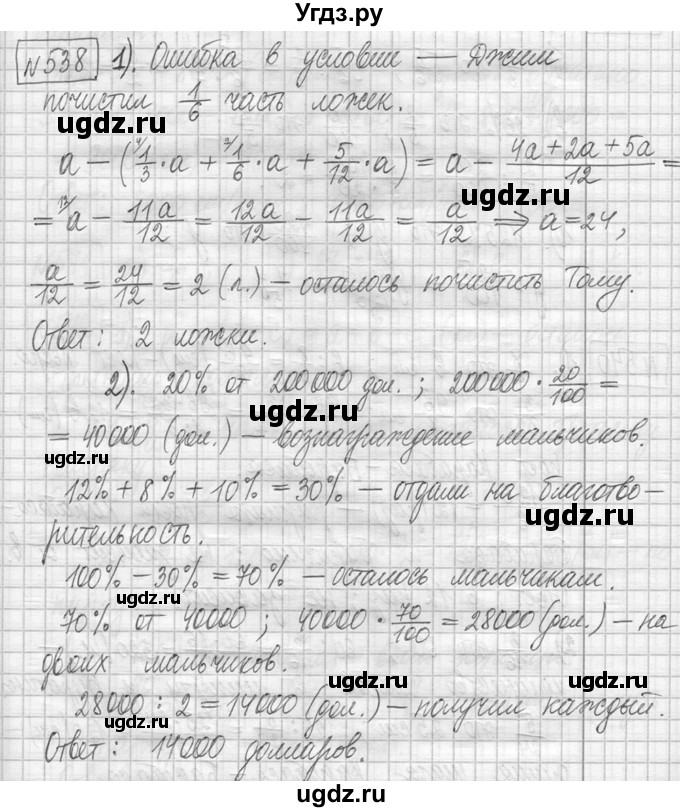 Угдз.ру
№538 1). Ошибка в условии — Джим
почистил 1/6 часть ложек.
ugdz.ru ugdz.ru
a − (⁴⁾1/3 · a + ²⁾1/6 · a + 5/12 · a) = a − (4a + 2a + 5a)/12 =
ugdz.ru
= ¹²⁾a − 11a/12 = 12a/12 − 11a/12 = a/12 ⇒ a = 24,
a/12 = 24/12 = 2 (л.) — осталось почистить Тому.
ugdz.ru ugdz.ru
Ответ: 2 ложки.
2). 20% от 200000 дол. ; 200000 · 20/100 =
ugdz.ru
= 40000 (дол.) — вознаграждение мальчиков.
ugdz.ru
12% + 8% + 10% = 30% — отдали на благотво-
ugdz.ru
рительность.
100% − 30% = 70% — осталось мальчикам.
ugdz.ru
70% от 40000 ; 40000 · 70/100 = 28000 (дол.) — на
двоих мальчиков.
ugdz.ru ugdz.ru
28000 : 2 = 14000 (дол.) — получил каждый.
Ответ: 14000 долларов.
ugdz.ru ugdz.ru